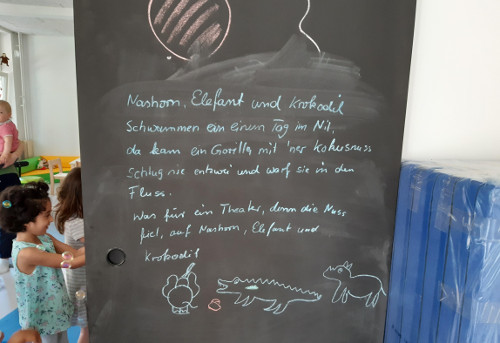 Nashorn, Elefant und Krokodil
Schwammen an einem Tag im Nil,
da kam ein Gorilla mit 'ner Kokusnuss
Schlug sie entzwei und warf sie in den
Fluss.
Was für ein Theater, denn die Nuss
fiel, auf Nashorn, Elefant und
Krokodil